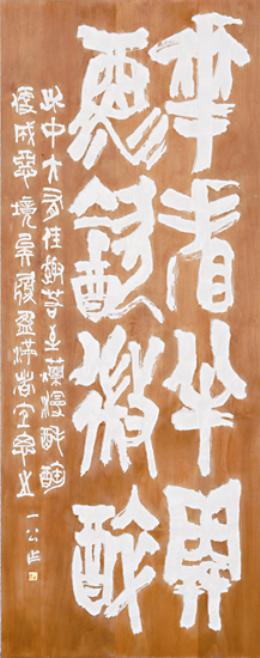 華看半開
酒飲微醉
此中大有佳趣若至爛漫酕醄
便成惡境矣履盈滿者宜思之 一公作